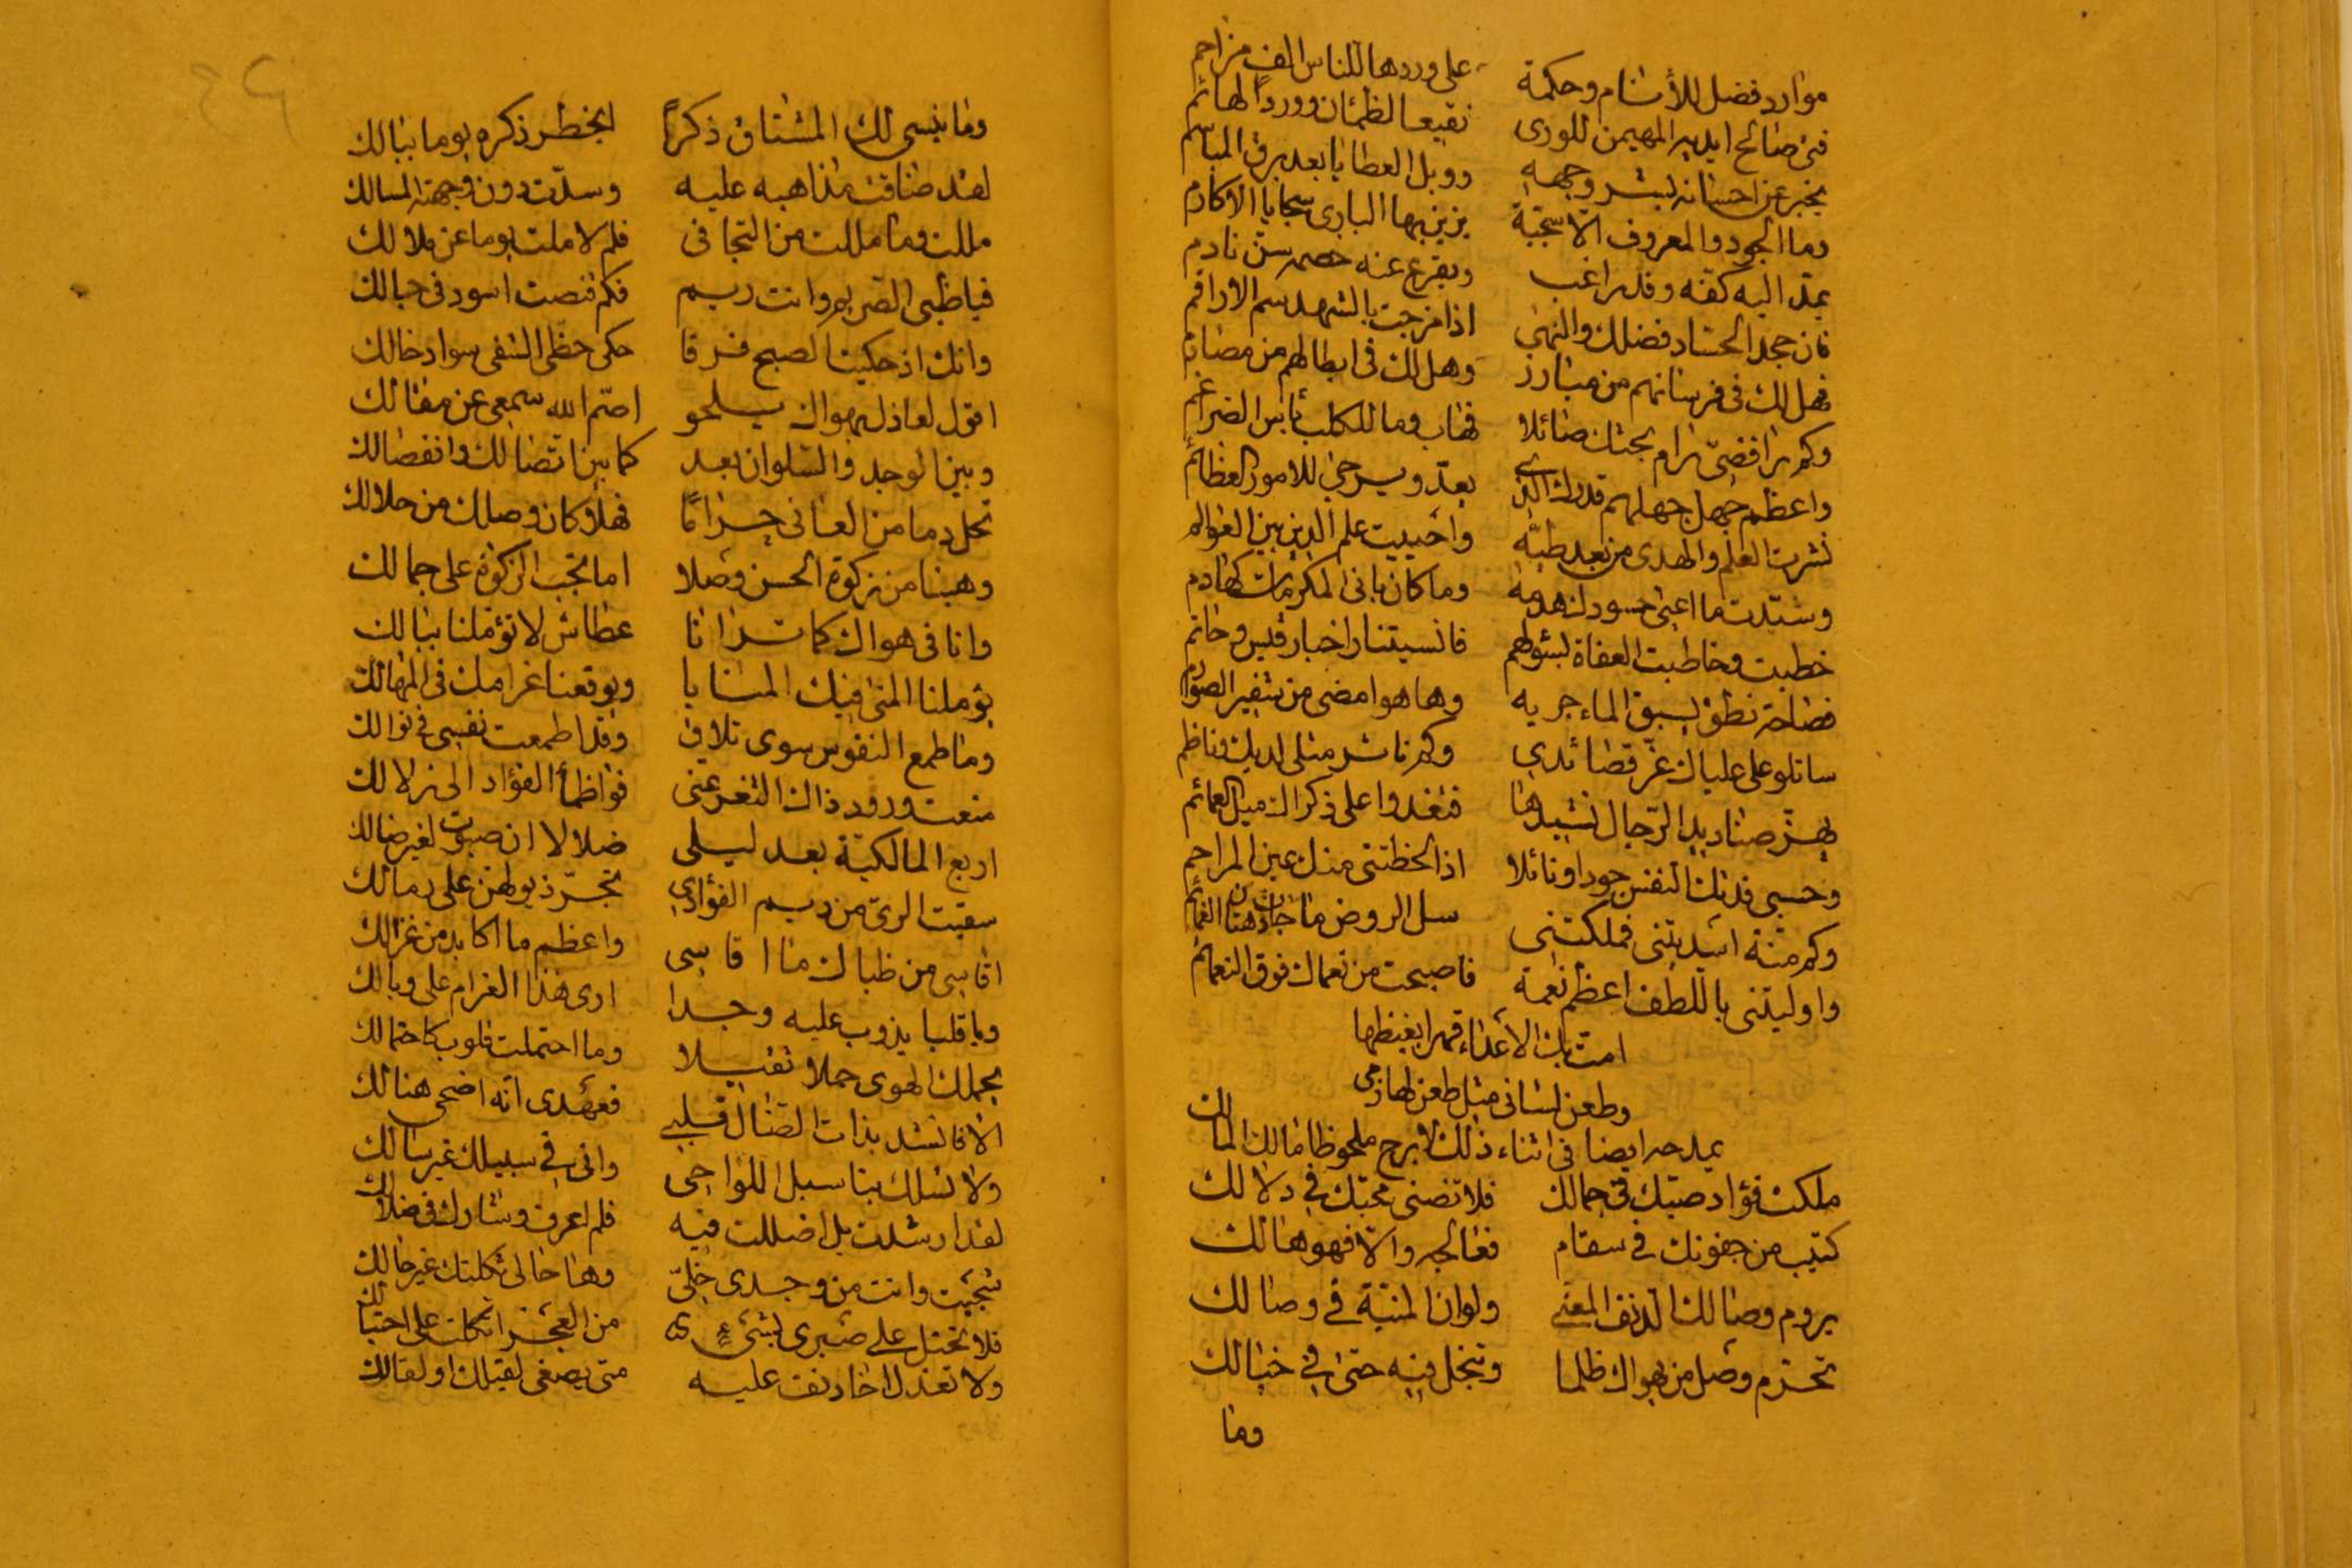 موارد فضل للأنام وحكمة على وردها للناس الف مزاحم
فتى صالح ايديه المهيمن للورى نقيعا لظمئان ووردا لهائم
يخبر عن احسانه بشر وجهه ووبل العطايا بعد برق المباسم
وما الجود والمعروف الا سجية يزين بها البارى سجايا الاكارم
يمد اليه كفه وفد راغب ويقرع عنه خصمه سن نادم
فان جحد الحساد فضلك والنهى اذا مزجت بالشهد سم الاراقم
فهل لك فى فرسانهم من مبارز وهل لك فى ابطالهم من مصادم
وكم رافضىّ رام بحثك صائلا فهاب وما للكلب بأس الضراغم
واعظم جهل جهلهم قدرك الذى يعدّ ويرجى للامور العظائم
نشرت العلم والهدى من بعد طيّه واحييت علم الدين بين العوالم
وشيّدت ما اعيى حسودك هدمه وما كان بانى المكرمات كهادم
خطبت وخاطبت العفاة بسؤلهم فانسيتنا اخبار قيس وحاتم
فصاحة نطق يسبق الماء جريه وها هو امضى من شفير الصوارم
ساتلو على علياك غرّ قصائدي وكم ناثر مثلى لديك وناظم
يهزّ صناديد الرّجال نشيدها فتغدوا على ذكراك ميل العمائم
وحسبى فدتك النفس جودا ونائلا اذا لحظتنى منك عين المراحم
وكم منّة اسديتنى فملكتنى سل الروض ما جادت هتان الغمائم
واوليتنى باللطف اعظم نعمة فاصبحت من نعماك فوق النعائم
امتّ بك الأعداء قهرا بغيظها
وطعن لسانى مثل طعن لهاذمى
يمدحه ايضا فى اثناء ذلك لا برح ملحوظا مالك المالك
ملكت فؤاد صبّك فى جمالك فلا تضنى محبّك في دلالك
كئيب من جفونك في سقام فعالجه والّا فهو هالك
يروم وصالك الدنف المعنّى ولو ان المنيّة في وصالك
تحرّم وصل من يهواك ظلما وتبخل فيه حتى في خيالك
وما
وما ينسى لك المشتاق ذكراً ايخطر ذكره يوما ببالك
لقد ضاقت مذاهبه عليه وسدّت دون وجهته المسالك
مللت وما مللت من التجافى فلم لا ملت يوما عن ملالك
فيا ظبى الصريم وانت ريم فكم قنصت اسود فى حبالك
وانك اذ حكيت الصبح فرقا حكى حظى الشقى سواد خالك
اقول لعاذل بهواك يلحو اصمّ الله سمعى عن مقالك
وبين الوجد والسلوان بعد كما بين اتصالك وانفصالك
تحل دما من العانى حراما فهلا كان وصلك من حلالك
وهبنا من زكوة الحسن وصلا اما تجب الزكوة على جمالك
وانا فى هواك كما ترانا عطاش لا تؤملنا ببالك
يؤملنا المنى فيك المنايا ويوقعنا غرامك فى المهالك
وما طمع النفوس سوى تلاف وقد اطمعت نفسى فى نوالك
منعت ورود ذاك الثغر عنى فواظمأ الفؤاد الى زلالك
اربع المالكيّة بعد ليلى ضلالا لا ان صبوت لغير ضالك
سقيت الرىّ من ريم الفؤادى تجرّ ذيولهن على رمالك
اقاسى من ظباك ما اقاسى واعظم ما اكابد من غزالك
ويا قلبا يذوب عليه وجدا ارى هذا الغرام على وبالك
يحملك الهوى حملا ثقيلا وما احتملت قلوب كاحتمالك
الا فانشد بذات الضال قلبى فعهدى انّه اضحى هنالك
ولا تسلك بنا سبل اللواحى وانى في سبيلك غير سالك
لقد ارشدت بل اضللت فيه فلم اعرف رشادك فى ضلالك
شجيت وانت من وجدى خلىّ وها حالى ثكلتك غير حالك
فلا تحتل على صبرى بشىء من العجز اتكلت على احتيالك
ولا تعذل اخا دنف عليه متى يصغى لقيلك او لقالك